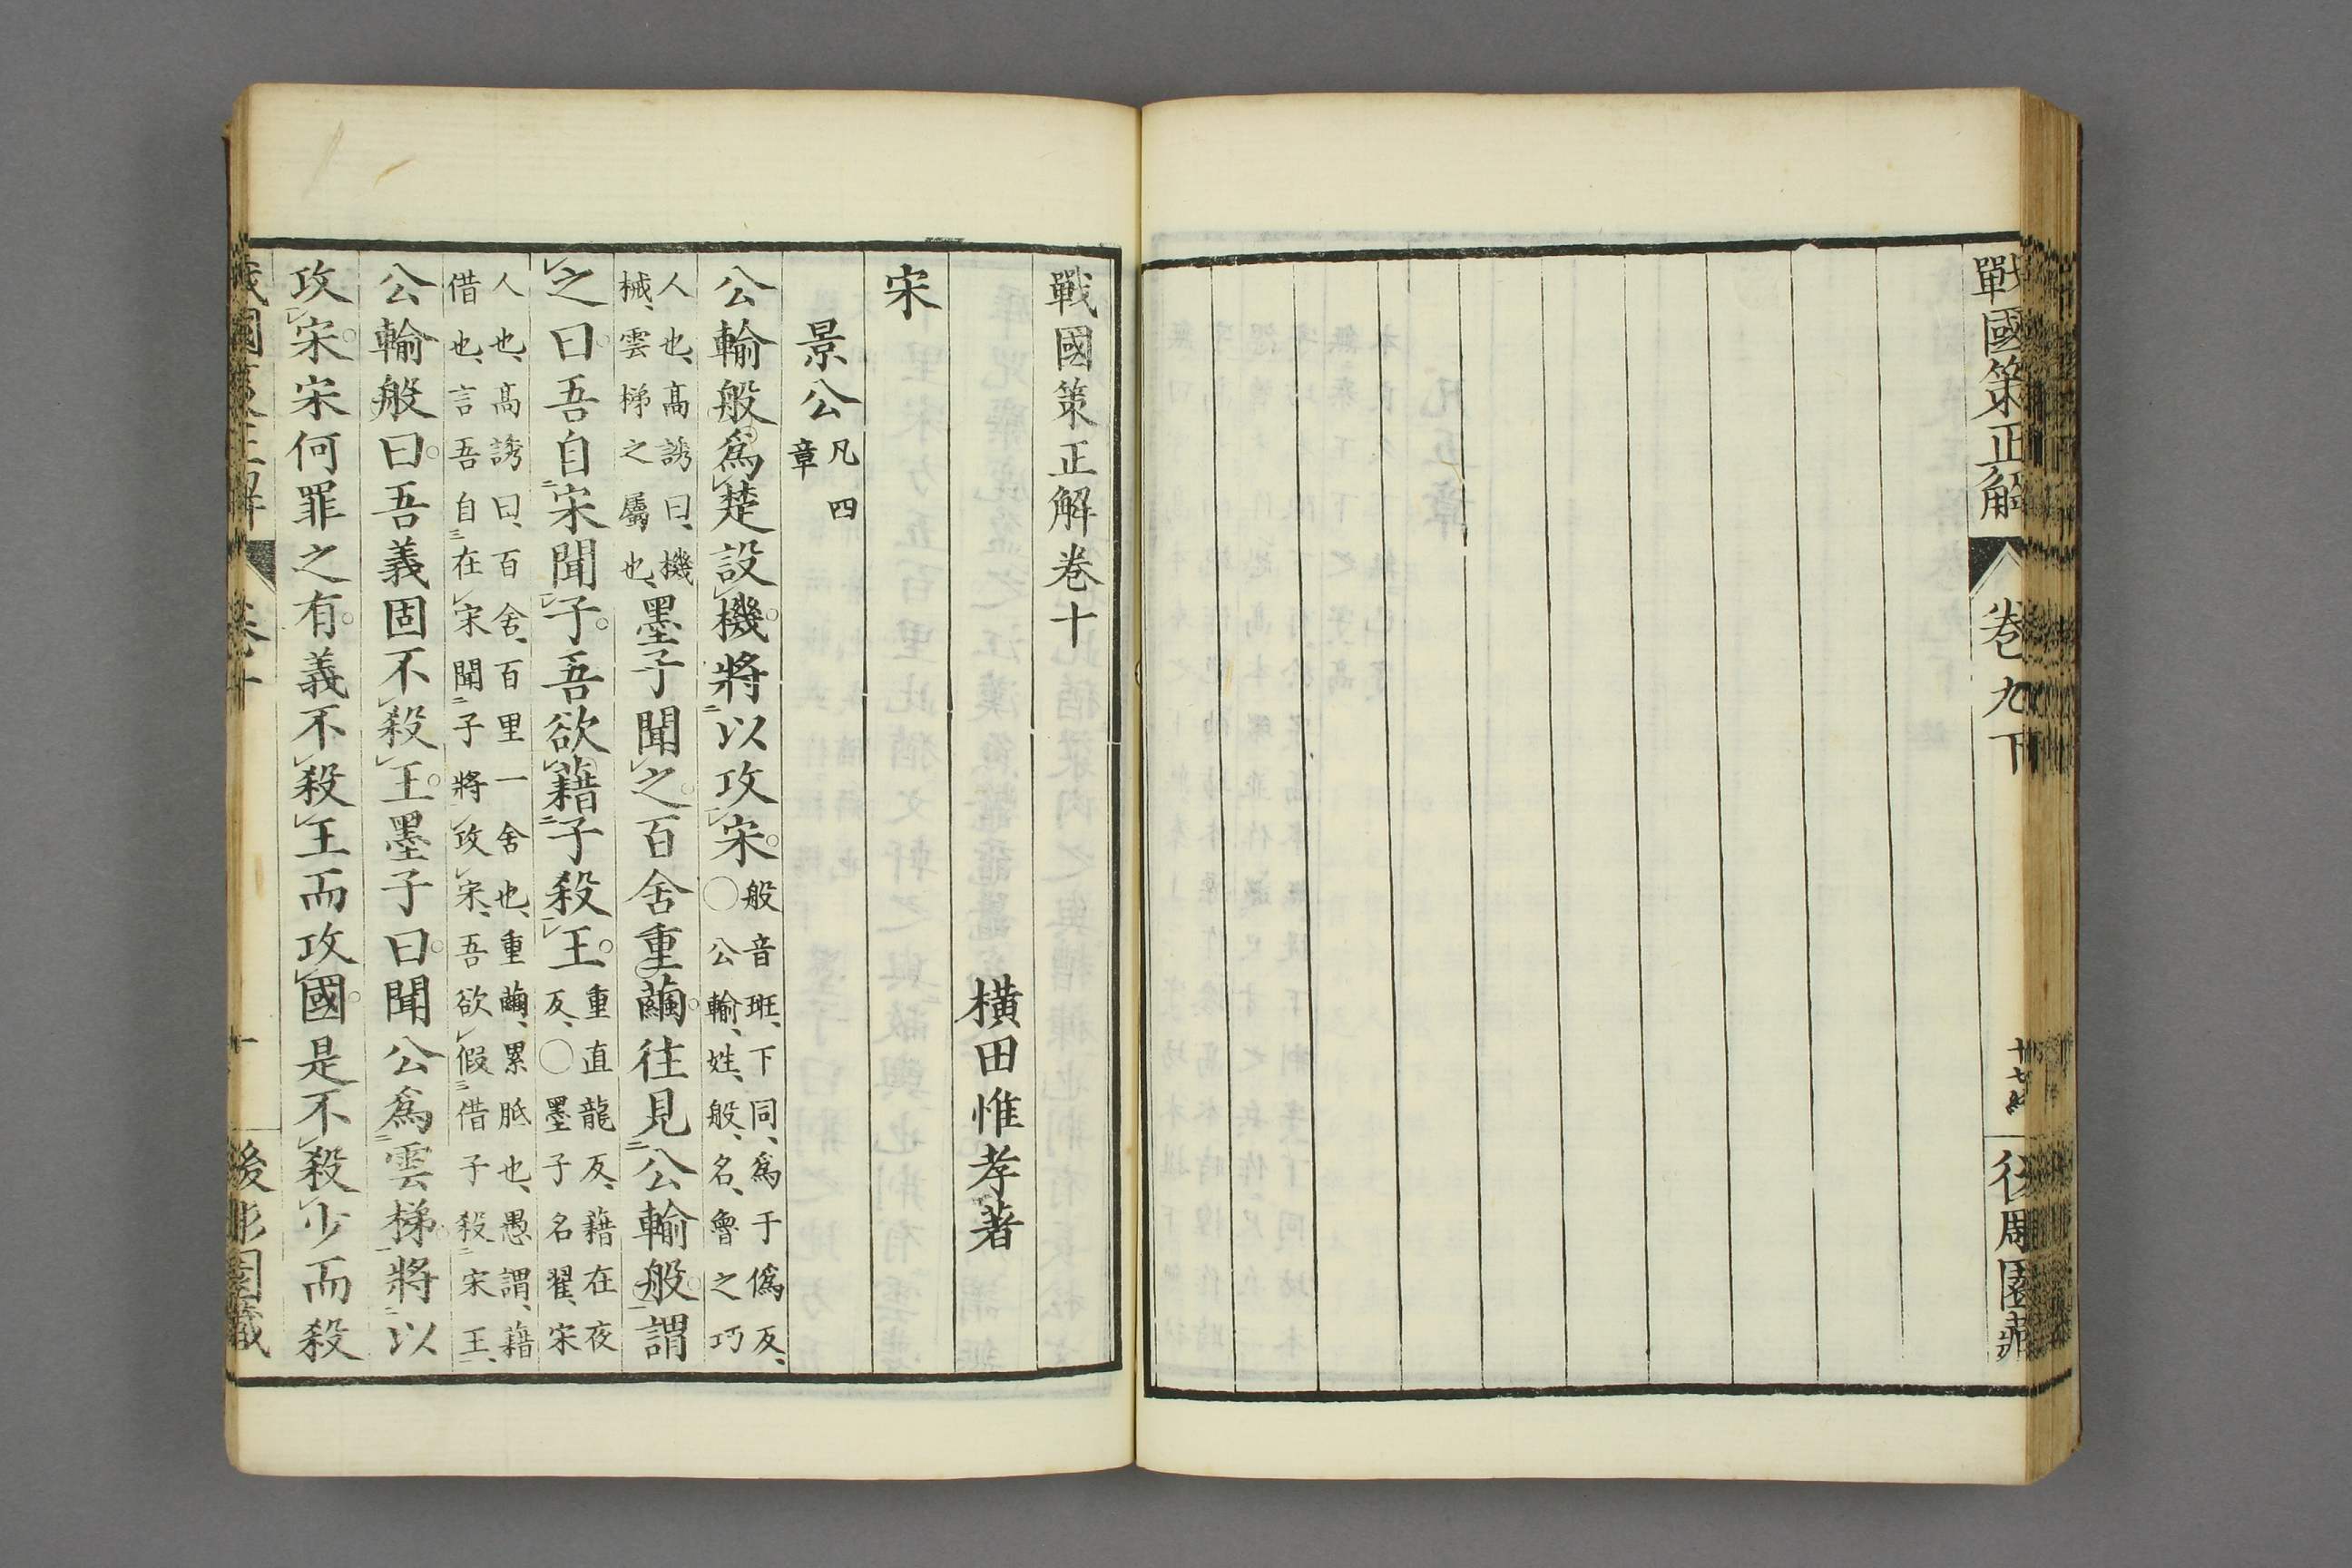 戰國策正解
卷九下
戰國策正解卷十
橫田惟孝著
宋
景公
凡四
章
公輸般爲楚設機將以攻宋
般音班、下同、爲于僞反、
〇公輸、姓、般、名、魯之巧
人也、高誘曰、機
械、雲梯之屬也、
墨子聞之百舍重繭往見公輸般謂
之曰吾自宋聞子吾欲藉子殺王
重直龍反、藉在夜
反、〇墨子名翟、宋
人也、高誘曰、百舍、百里一舍也、重繭、累胝也、愚謂、藉
借也、言吾自在宋聞子將攻宋、吾欲假借子殺宋王、
公輸般曰吾義固不殺王墨子曰聞公爲雲梯將以
攻宋宋何罪之有義不殺王而攻國是不殺少而殺